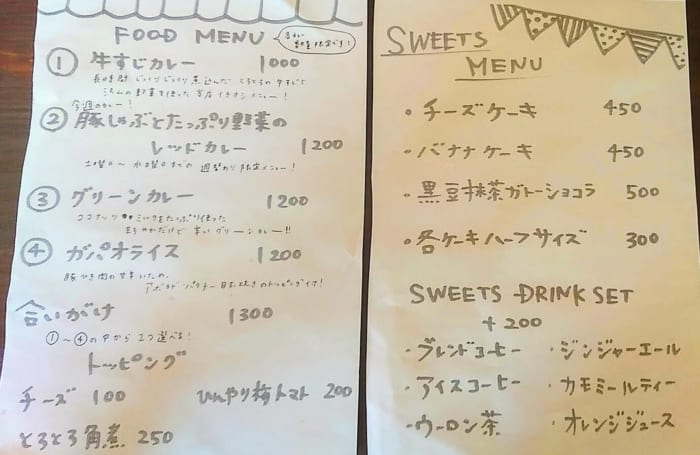 FOOD MENU
数量限定です!
① 牛すじカレー 1000
長時間 じっくりじっくり煮込んだ とろとろの牛すじと
沢山の野菜を使った 当店イチオシメニュー!
今週のカレー!
② 豚しゃぶとたっぷり野菜の
レッドカレー 1200
土曜日〜水曜日までの 週替わり限定メニュー!
③ グリーンカレー 1200
ココナッツミルクをたっぷり使った
まろやかだけど 辛い グリーンカレー!!
④ ガパオライス 1200
豚ひき肉の甘辛いため、
アボカド パクチー 目玉焼きのトッピングイチ!
合いがけ 1300
①〜④の中から 2つ選べる!
トッピング
チーズ 100 ひんやり梅トマト 200
とろとろ角煮 250
SWEETS
MENU
・チーズケーキ 450
・バナナケーキ 450
・黒豆抹茶ガトーショコラ 500
・各ケーキハーフサイズ 300
SWEETS DRINK SET
+200
・ブレンドコーヒー ・ジンジャーエール
・アイスコーヒー ・カモミールティー
・ウーロン茶 ・オレンジジュース